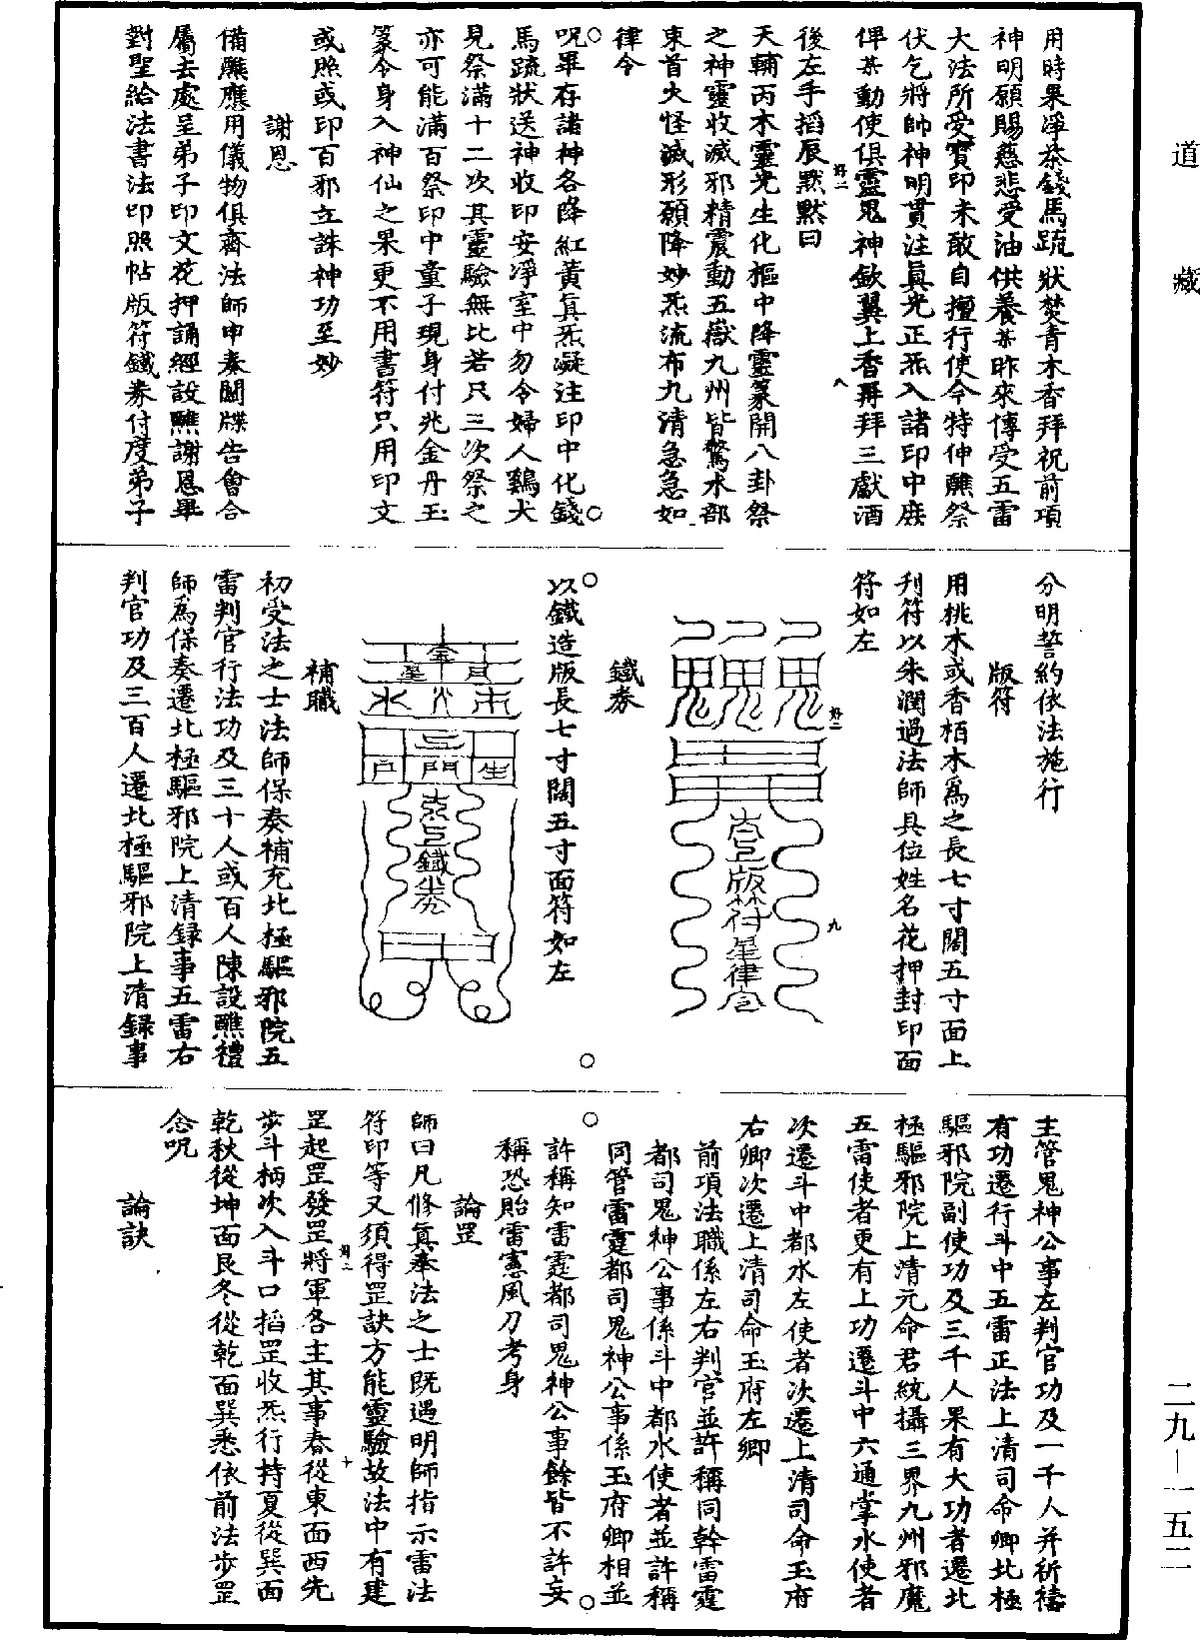 道藏
用時果淨茶錢馬疏狀焚青木香拜祝前項
神明願賜慈悲受油供養某昨來傳受五雷
大法所受寶印未敢自擅行使今特伸醮祭
伏乞將帥神明貫注真光正炁入諸印中庶
俾某動使俱靈鬼神欽翼上香再拜三獻酒
後左手掐辰默默曰
天輔丙木靈光生化樞中降靈篆開八卦祭
之神靈收滅邪精震動五嶽九州皆驚水部
束首火怪滅形願降妙炁流布九清急急如
律令
呪畢存諸神各降紅黃真炁凝注印中化錢
馬疏狀送神收印安淨室中勿令婦人鷄犬
見祭滿十二次其靈驗無比若只三次祭之
亦可能滿百祭印中童子現身付兆金丹玉
篆令身入神仙之果更不用書符只用印文
或照或印百邪立誅神功至妙
謝恩
備醮應用儀物俱齊法師申奏關牒告會合
屬去處呈弟子印文花押誦經設醮謝恩畢
對聖給法書法印照帖版符鐵券付度弟子
分明誓約依法施行
版符
用桃木或香栢木為之長七寸闊五寸面上
刋符以朱潤過法師具位姓名花押封印面
符如左
鐵券
以鐵造版長七寸闊五寸面符如左
補職
初受法之士法師保奏補充北極驅邪院五
雷判官行法功及三十人或百人陳設醮禮
師為保奏遷北極驅邪院上清録事五雷右
判官功及三百人遷北極驅邪院上清録事
主管鬼神公事左判官功及一千人并祈禱
有功遷行斗中五雷正法上清司命卿北極
驅邪院副使功及三千人果有大功者遷北
極驅邪院上清元命君統攝三界九州邪魔
五雷使者更有上功遷斗中六通掌水使者
次遷斗中都水左使者次遷上清司命玉府
右卿次遷上清司命玉府左卿
前項法職係左右判官並許稱同幹雷霆
都司鬼神公事係斗中都水使者並許稱
同管雷霆都司鬼神公事係玉府卿相並
許稱知雷霆都司鬼神公事餘皆不許妄
稱恐貽雷憲風刀考身
論罡
師曰凡修真奉法之士既遇明師指示雷法
符印等又須得罡訣方能靈驗故法中有建
罡起罡發罡將軍各主其事春從東面西先
步斗柄次入斗口掐罡收炁行持夏從巽面
乾秋從坤面艮冬從乾面巽悉依前法步罡
念呪
論訣
二九—一五二